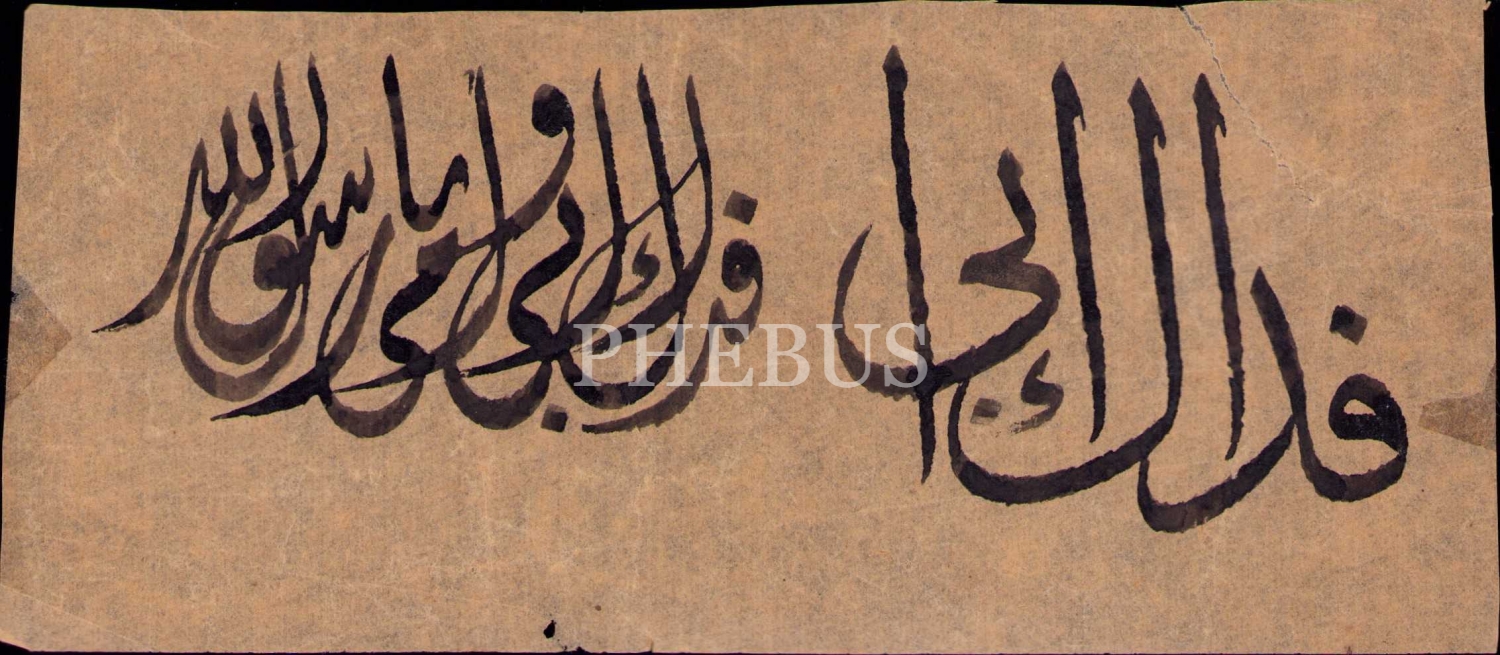 فداك ابى ا فداك ابى و امى يا رسول الله
PHEBUS